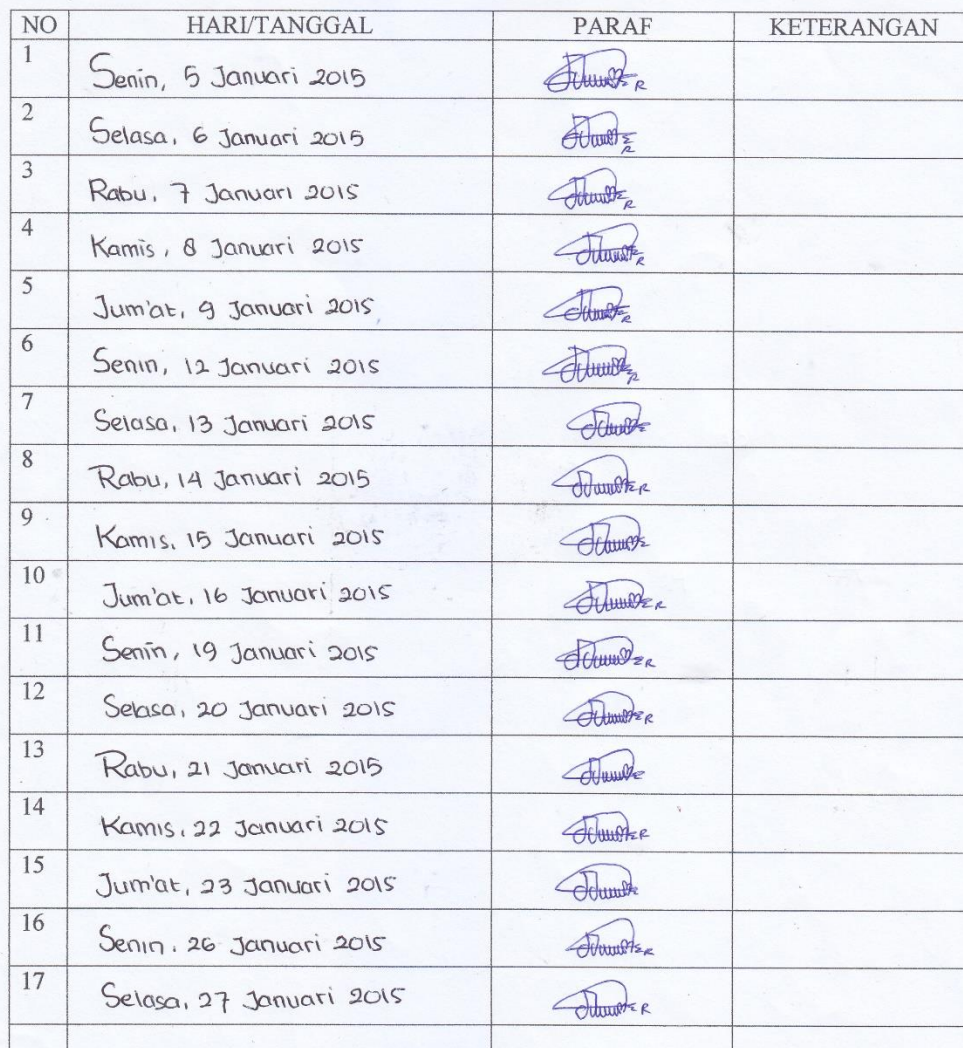 NO HARI/TANGGAL PARAF KETERANGAN
1 Senin, 5 Januari 2015
2 Selasa, 6 Januari 2015
3 Rabu, 7 Januari 2015
4 Kamis, 8 Januari 2015
5 Jum'at, 9 Januari 2015
6 Senin, 12 Januari 2015
7 Selasa, 13 Januari 2015
8 Rabu, 14 Januari 2015
9 Kamis, 15 Januari 2015
10 Jum'at, 16 Januari 2015
11 Senin, 19 Januari 2015
12 Selasa, 20 Januari 2015
13 Rabu, 21 Januari 2015
14 Kamis, 22 Januari 2015
15 Jum'at, 23 Januari 2015
16 Senin, 26 Januari 2015
17 Selasa, 27 Januari 2015